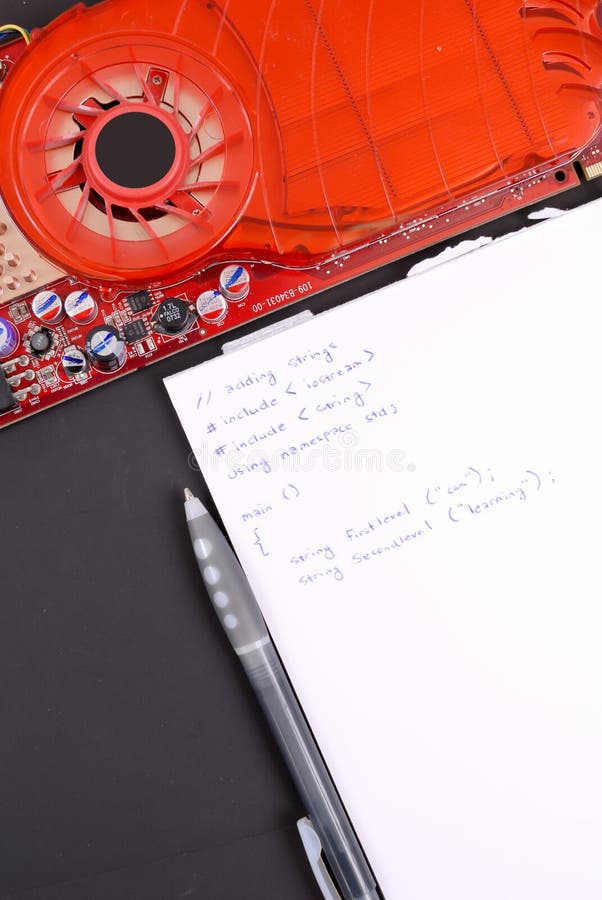 109-B34031-00
1.7L
FALCO
0732
// adding strings
#include <iostream>
#include <cstring>
using namespace std;
main ()
{
string firstlevel ("com");
string secondlevel ("learning");
dreamstime